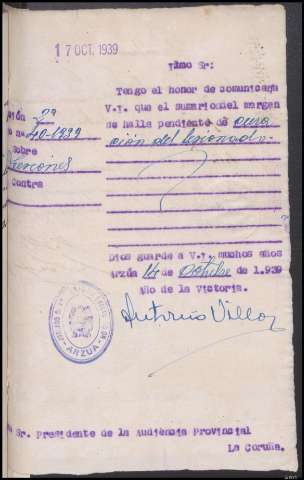 17 OCT. 1939
Iltmo Sr:
Tengo el honor de comunicar a
V.I. que el sumario del margen
se halla pendiente de cura
ción del lesionado.
ción 2ª
o nº 40-1939
Sobre
Lesiones
Contra
Dios guarde a V.I. muchos años
Arzúa 14 de Octubre de 1.939
Año de la Victoria.
Antonio Villar
ARZUA
Sr. Presidente de la Audiencia Provincial
La Coruña.